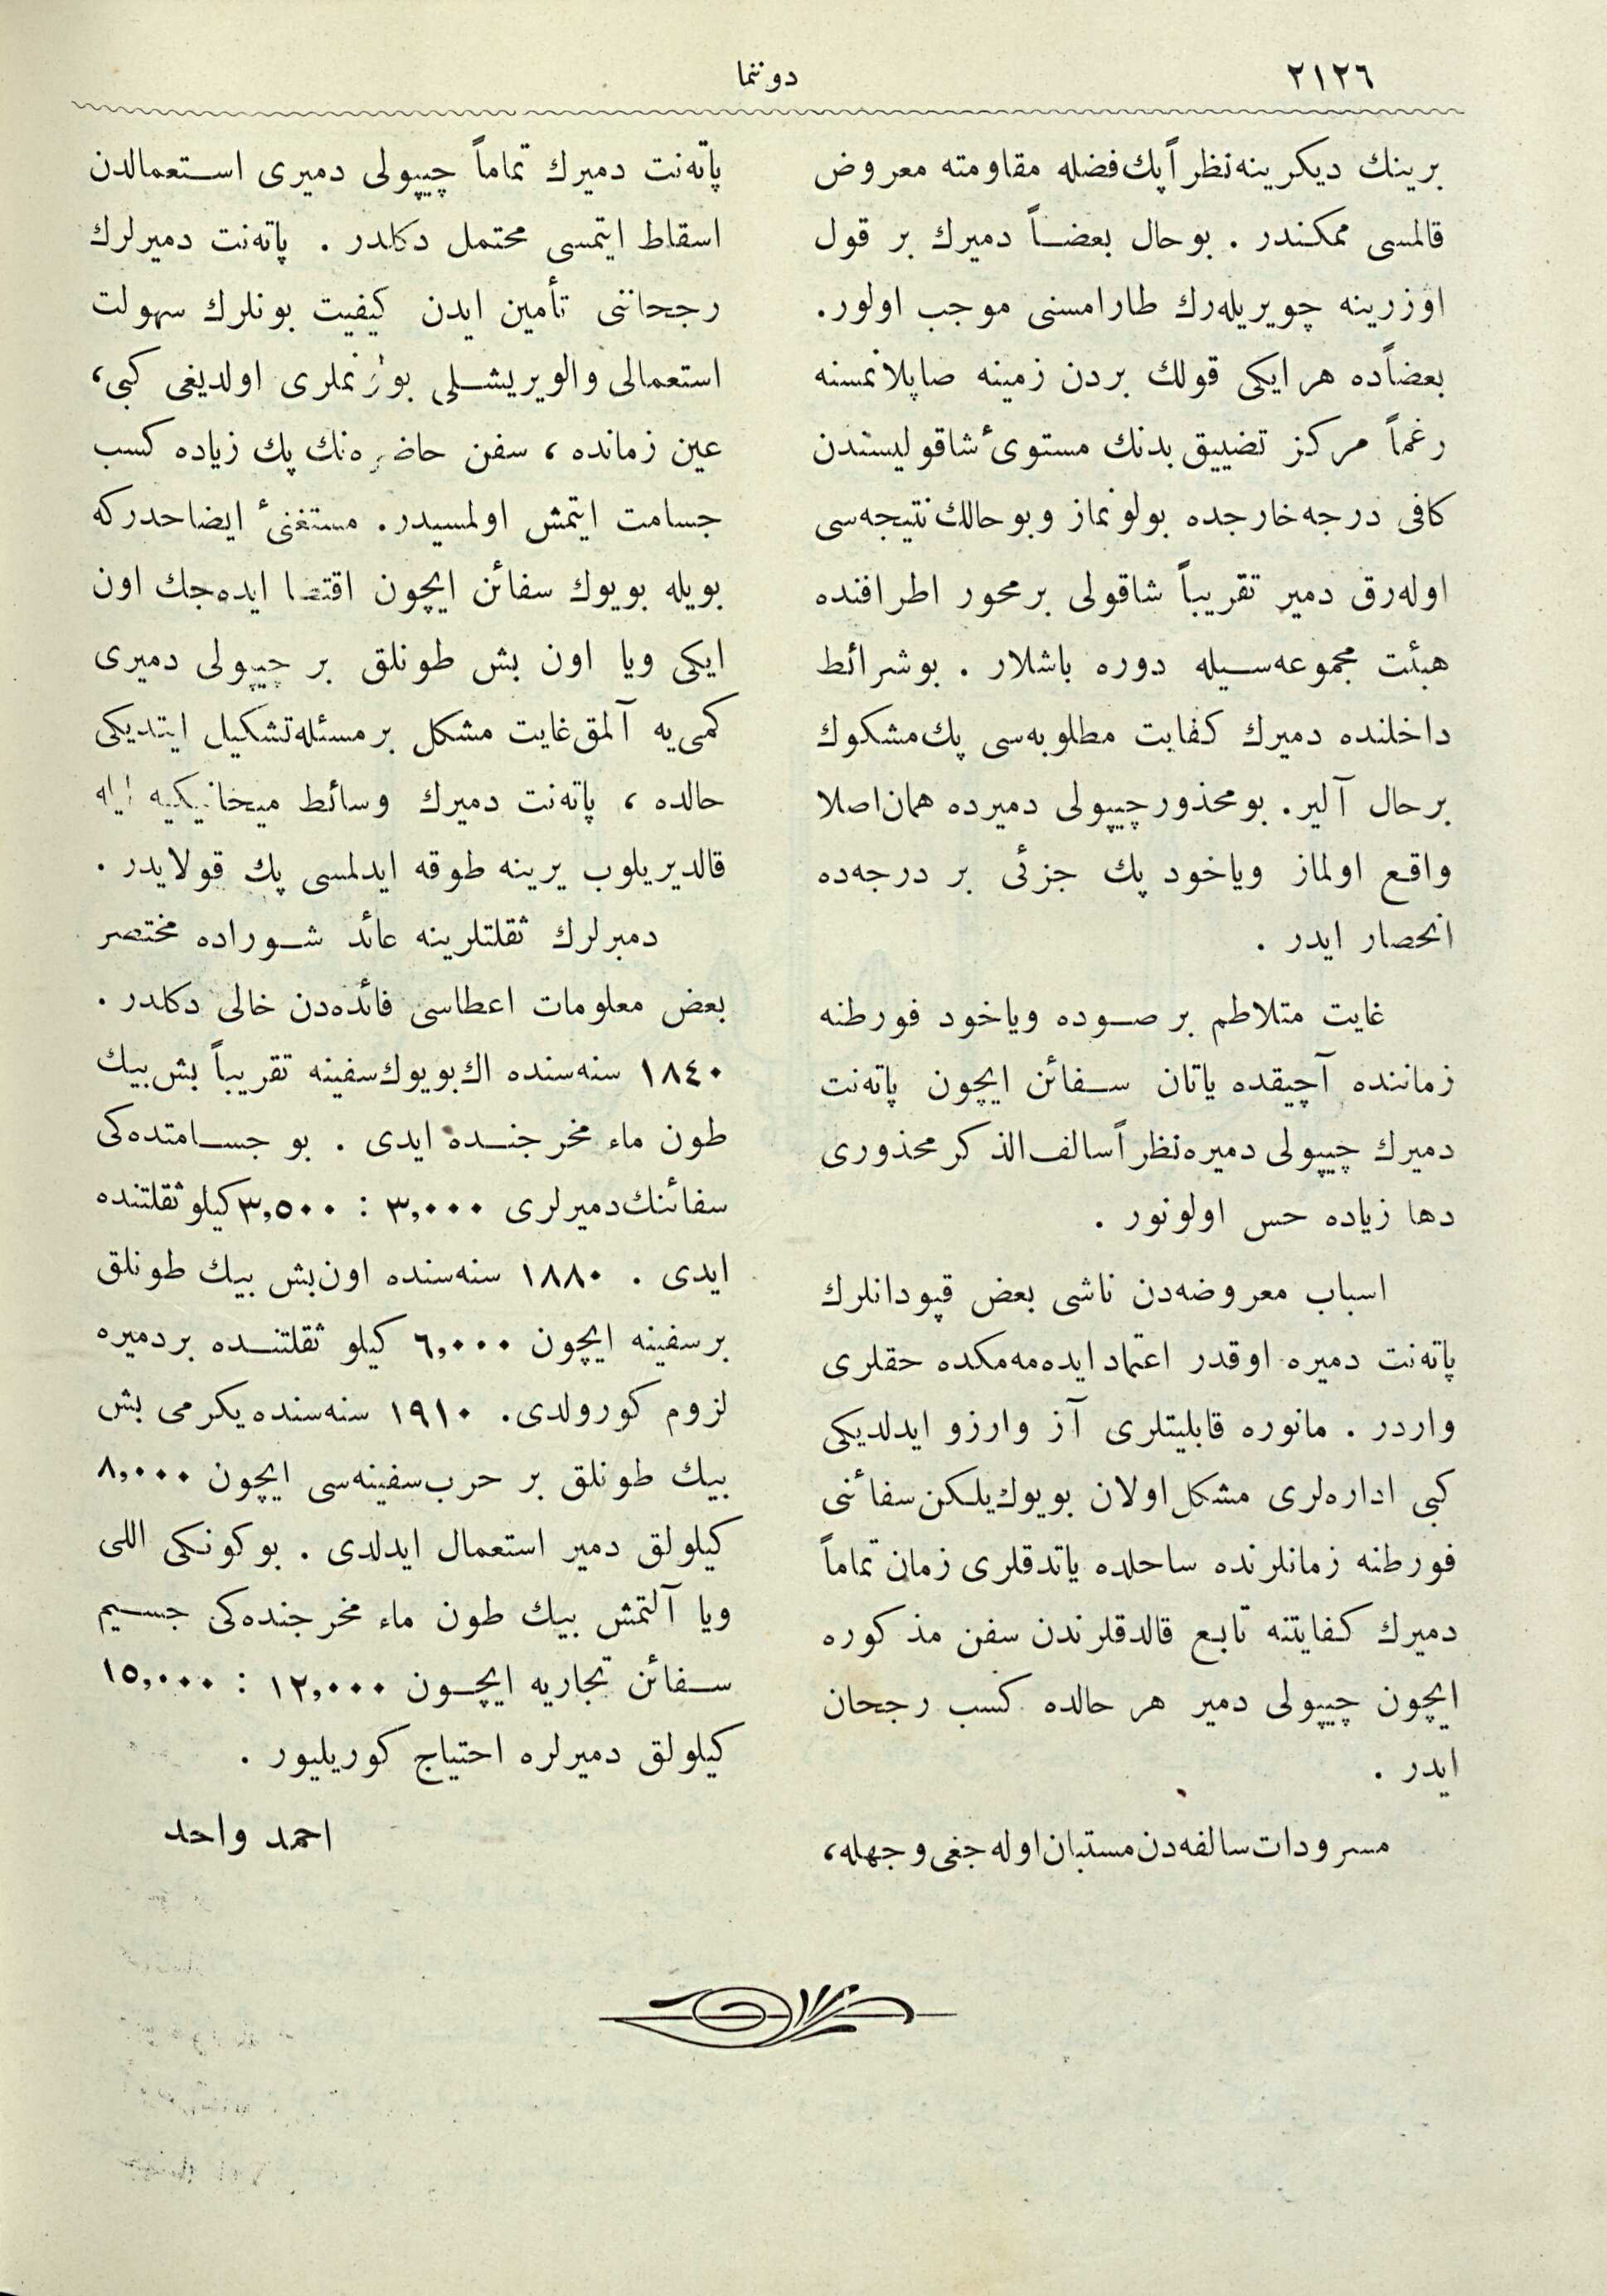 ٢١٢٦
دوننما
برينك ديكرينه نظراً پك فضله مقاومته معروض
قالمسى ممكندر . بوحال بعضاً دميرك بر قول
اوزرينه چويريله‌رك طارامسنى موجب اولور.
بعضاًده هر ايكى قولك بردن زمينه صاپلانمسنه
رغماً مركز تضييق بدنك مستوئ شاقوليسندن
كافى درجه خارجده بولونماز وبوحالك نتيجه‌سى
اوله‌رق دمير تقريباً شاقولى برمحور اطرافنده
هيئت مجموعه‌سيله دوره باشلار . بوشرائط
داخلنده دميرك كفايت مطلوبه‌سى پك مشكوك
برحال آلير. بومحذور چيپولى دميرده همان اصلا
واقع اولماز وياخود پك جزئى بر درجه‌ده
انحصار ايدر .
غايت متلاطم بر صوده وياخود فورطنه
زماننده آچيقده ياتان سفائن ايچون پاته‌نت
دميرك چيپولى دميره نظراً سالف الذكر محذورى
دها زياده حس اولونور .
اسباب معروضه‌دن ناشى بعض قپودانلرك
پاته‌نت دميره اوقدر اعتماد ايده‌مه‌مكده حقلرى
واردر . مانوره قابليتلرى آز وارزو ايدلديكى
كبى اداره‌لرى مشكل اولان بويوك يلكن سفائنى
فورطنه زمانلرنده ساحلده ياتدقلرى زمان تماماً
دميرك كفايتنه تابع قالدقلرندن سفن مذكوره
ايچون چيپولى دمير هر حالده كسب رجحان
ايدر .
مسرودات سالفه‌دن مستبان اوله‌جغى وجهله،
پاته‌نت دميرك تماماً چيپولى دميرى استعمالدن
اسقاط ايتمسى محتمل دكلدر . پاته‌نت دميرلرك
رجحاننى تأمين ايدن كيفيت بونلرك سهولت
استعمالى والويريشلى بولونملرى اولديغى كبى،
عين زمانده ، سفن حاضره‌نك پك زياده كسب
جسامت ايتمش اولمسيدر. مستغنئ ايضاحدركه
بويله بويوك سفائن ايچون اقتضا ايده‌جك اون
ايكى ويا اون بش طونلق بر چيپولى دميرى
كمى‌يه آلمق غايت مشكل برمسئله تشكيل ايتديكى
حالده ، پاته‌نت دميرك وسائط ميخانيكيه ايله
قالديريلوب يرينه طوقه ايدلمسى پك قولايدر .
دميرلرك ثقلتلرينه عائد شوراده مختصر
بعض معلومات اعطاسى فائده‌دن خالى دكلدر .
١٨٤٠ سنه‌سنده اك بويوك سفينه تقريباً بش بيك
طون ماء مخرجنده ايدى . بو جسامتده‌كى
سفائنك دميرلرى ٣,٠٠٠ : ٣,٥٠٠ كيلو ثقلتنده
ايدى . ١٨٨٠ سنه‌سنده اون بش بيك طونلق
برسفينه ايچون ٦,٠٠٠ كيلو ثقلتنده بردميره
لزوم كورولدى. ١٩١٠ سنه‌سنده يكرمى بش
بيك طونلق بر حرب سفينه‌سى ايچون ٨,٠٠٠
كيلولق دمير استعمال ايدلدى . بوكونكى اللى
ويا آلتمش بيك طون ماء مخرجنده‌كى جسيم
سفائن تجاريه ايچون ١٢,٠٠٠ : ١٥,٠٠٠
كيلولق دميرلره احتياج كوريليور .
احمد واحد